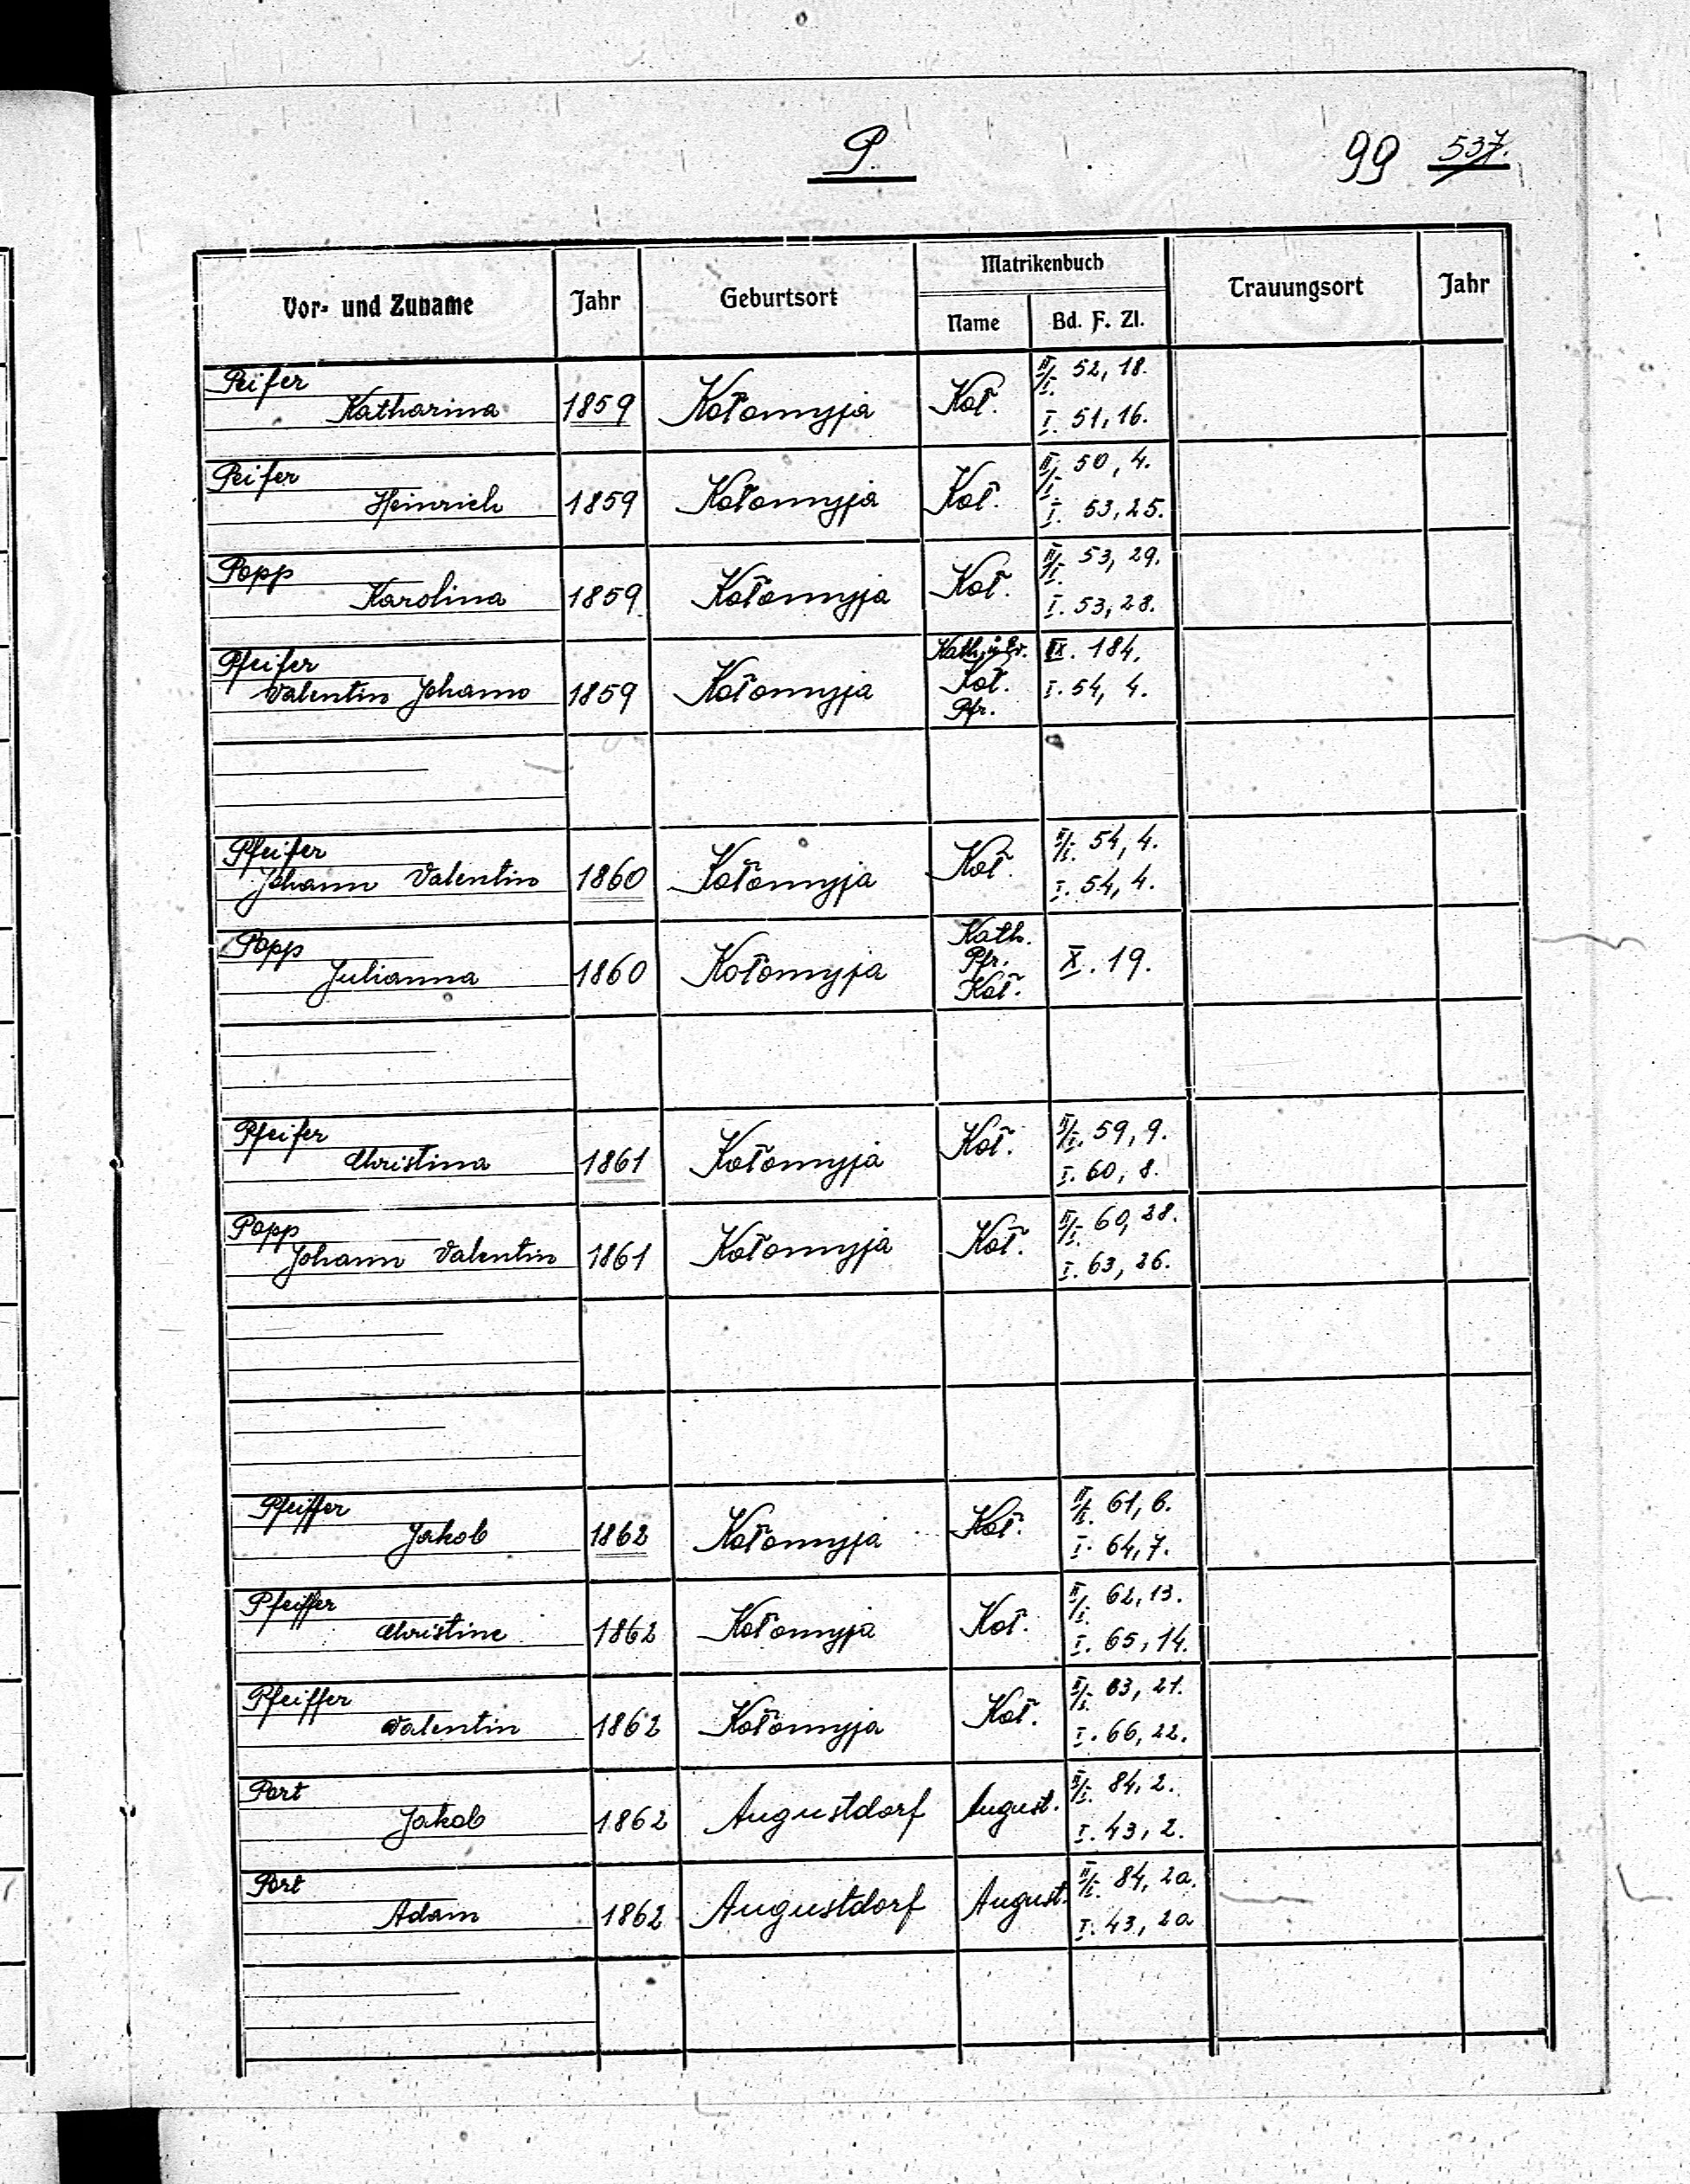 P.
99 537.
Vor- und Zuname Jahr Geburtsort Matrikenbuch Trauungsort Jahr
Name Bd. F. Zl.
Peifer II/I. 52, 18.
Katharina 1859 Kołomyja Koł. I. 51, 16.
Peifer II/I. 50, 4.
Heinrich 1859 Kołomyja Koł. I. 53, 25.
Popp II/I. 53, 29.
Karolina 1859 Kołomyja Koł. I. 53, 28.
Pfeifer Kath. IX. 184.
Valentin Johann 1859 Kołomyja Koł. I. 54, 4.
Pfr.
Pfeifer II/I. 54, 4.
Johann Valentin 1860 Kołomyja Koł. I. 54, 4.
Popp Kath.
Julianna 1860 Kołomyja Pfr. X. 19.
Koł.
Pfeifer II/I. 59, 9.
Christina 1861 Kołomyja Koł. I. 60, 8.
Popp II/I. 60, 28.
Johann Valentin 1861 Kołomyja Koł. I. 63, 26.
Pfeiffer II/I. 61, 6.
Jakob 1862 Kołomyja Koł. I. 64, 7.
Pfeiffer II/I. 62, 13.
Christine 1862 Kołomyja Koł. I. 65, 14.
Pfeiffer II/I. 63, 21.
Valentin 1862 Kołomyja Koł. I. 66, 22.
Port II/I. 84, 2.
Jakob 1862 Augustdorf August. I. 43, 2.
Port II/I. 84, 2a.
Adam 1862 Augustdorf August. I. 43, 2a